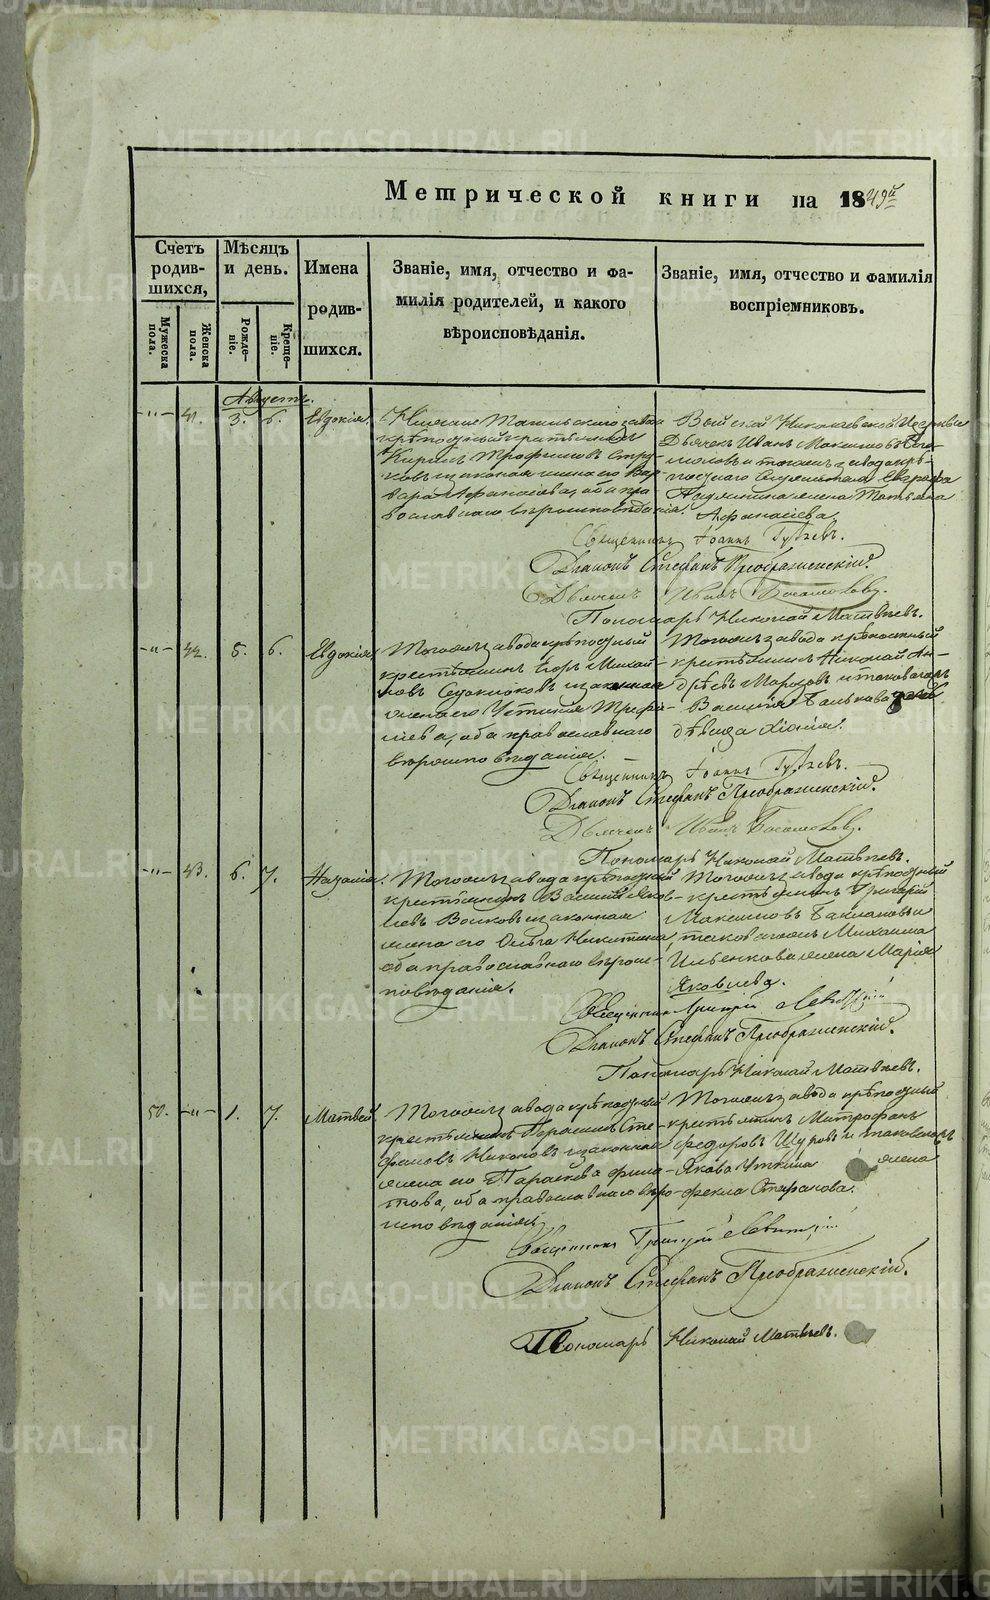 METRIKI.GASO-URAL.RU
Метрической книги на 1849й
Счетъ родив-шихся,
Мужеска пола.
Женска пола.
Мѣсяцъ и день.
Рожде-ніе.
Креще-ніе.
Имена родив-шихся.
Званіе, имя, отчество и фа-
милія родителей, и какого
вѣроисповѣданія.
Званіе, имя, отчество и фамилія
воспріемниковъ.
Августъ.
-"- 41. 3. 6. Евдокія.
Нижне Тагильскаго завода
крѣпостный крестьянинъ
Кирилъ Трофимовъ
законная жена его Вар-
вара Афанасіева, оба пра
вославнаго вѣроисповѣданія.
Выйской Николаевской Церкви
Дьячекъ Иванъ Максимовъ Бого-
моловъ и тогожъ завода крѣ-
постнаго Евграфа
жена Татьяна
Афанасіева.
Священникъ Іоаннъ
Діаконъ Стефанъ Преображенскій.
Дьячекъ Иванъ Богомоловъ.
Пономарь Николай Матвѣевъ.
-"- 42. 5. 6. Евдокія.
Тогожъ завода крѣпостный
крестьянинъ Егоръ Михай-
ловъ законная
жена его Устинія Трефи-
лова, оба православнаго
вѣроисповѣданія.
Тогожъ завода крѣпостный
крестьянинъ Николай Ан-
дрѣевъ Морозовъ и таковагожъ
Василія
дѣвица
Священникъ Іоаннъ
Діаконъ Стефанъ Преображенскій.
Дьячекъ Иванъ Богомоловъ.
Пономарь Николай Матвѣевъ.
-"- 43. 6. 7. Наталія.
Тогожъ завода крѣпостный
крестьянинъ Василій Яков-
левъ Волковъ законная
жена его Ольга Никитина,
оба православнаго вѣрои-
сповѣданія.
Тогожъ завода крѣпостный
крестьянинъ Григорій
Максимовъ и
таковагожъ Михаила
жена Марія
Яковлева.
Священникъ Григорій Левитскій
Діаконъ Стефанъ Преображенскій.
Пономарь Николай Матвѣевъ.
50. -"- 1. 7. Матвей.
Тогожъ завода крѣпостный
крестьянинъ Герасимъ Сте-
фановъ Никоновъ законная
жена его Параскева Фила-
това, оба православнаго вѣро-
исповѣданія.
Тогожъ завода крѣпостный
крестьянинъ Митрофанъ
Федоровъ Щуровъ и таковагожъ
Якова Уткина жена
Фекла
Священникъ Григорій Левитскій
Діаконъ Стефанъ Преображенскій.
Пономарь Николай Матвѣевъ.